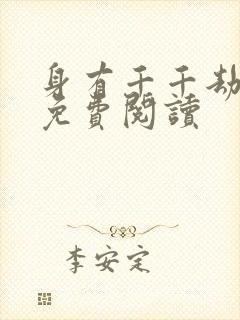 身有千千劫
免費閱讀
李安定